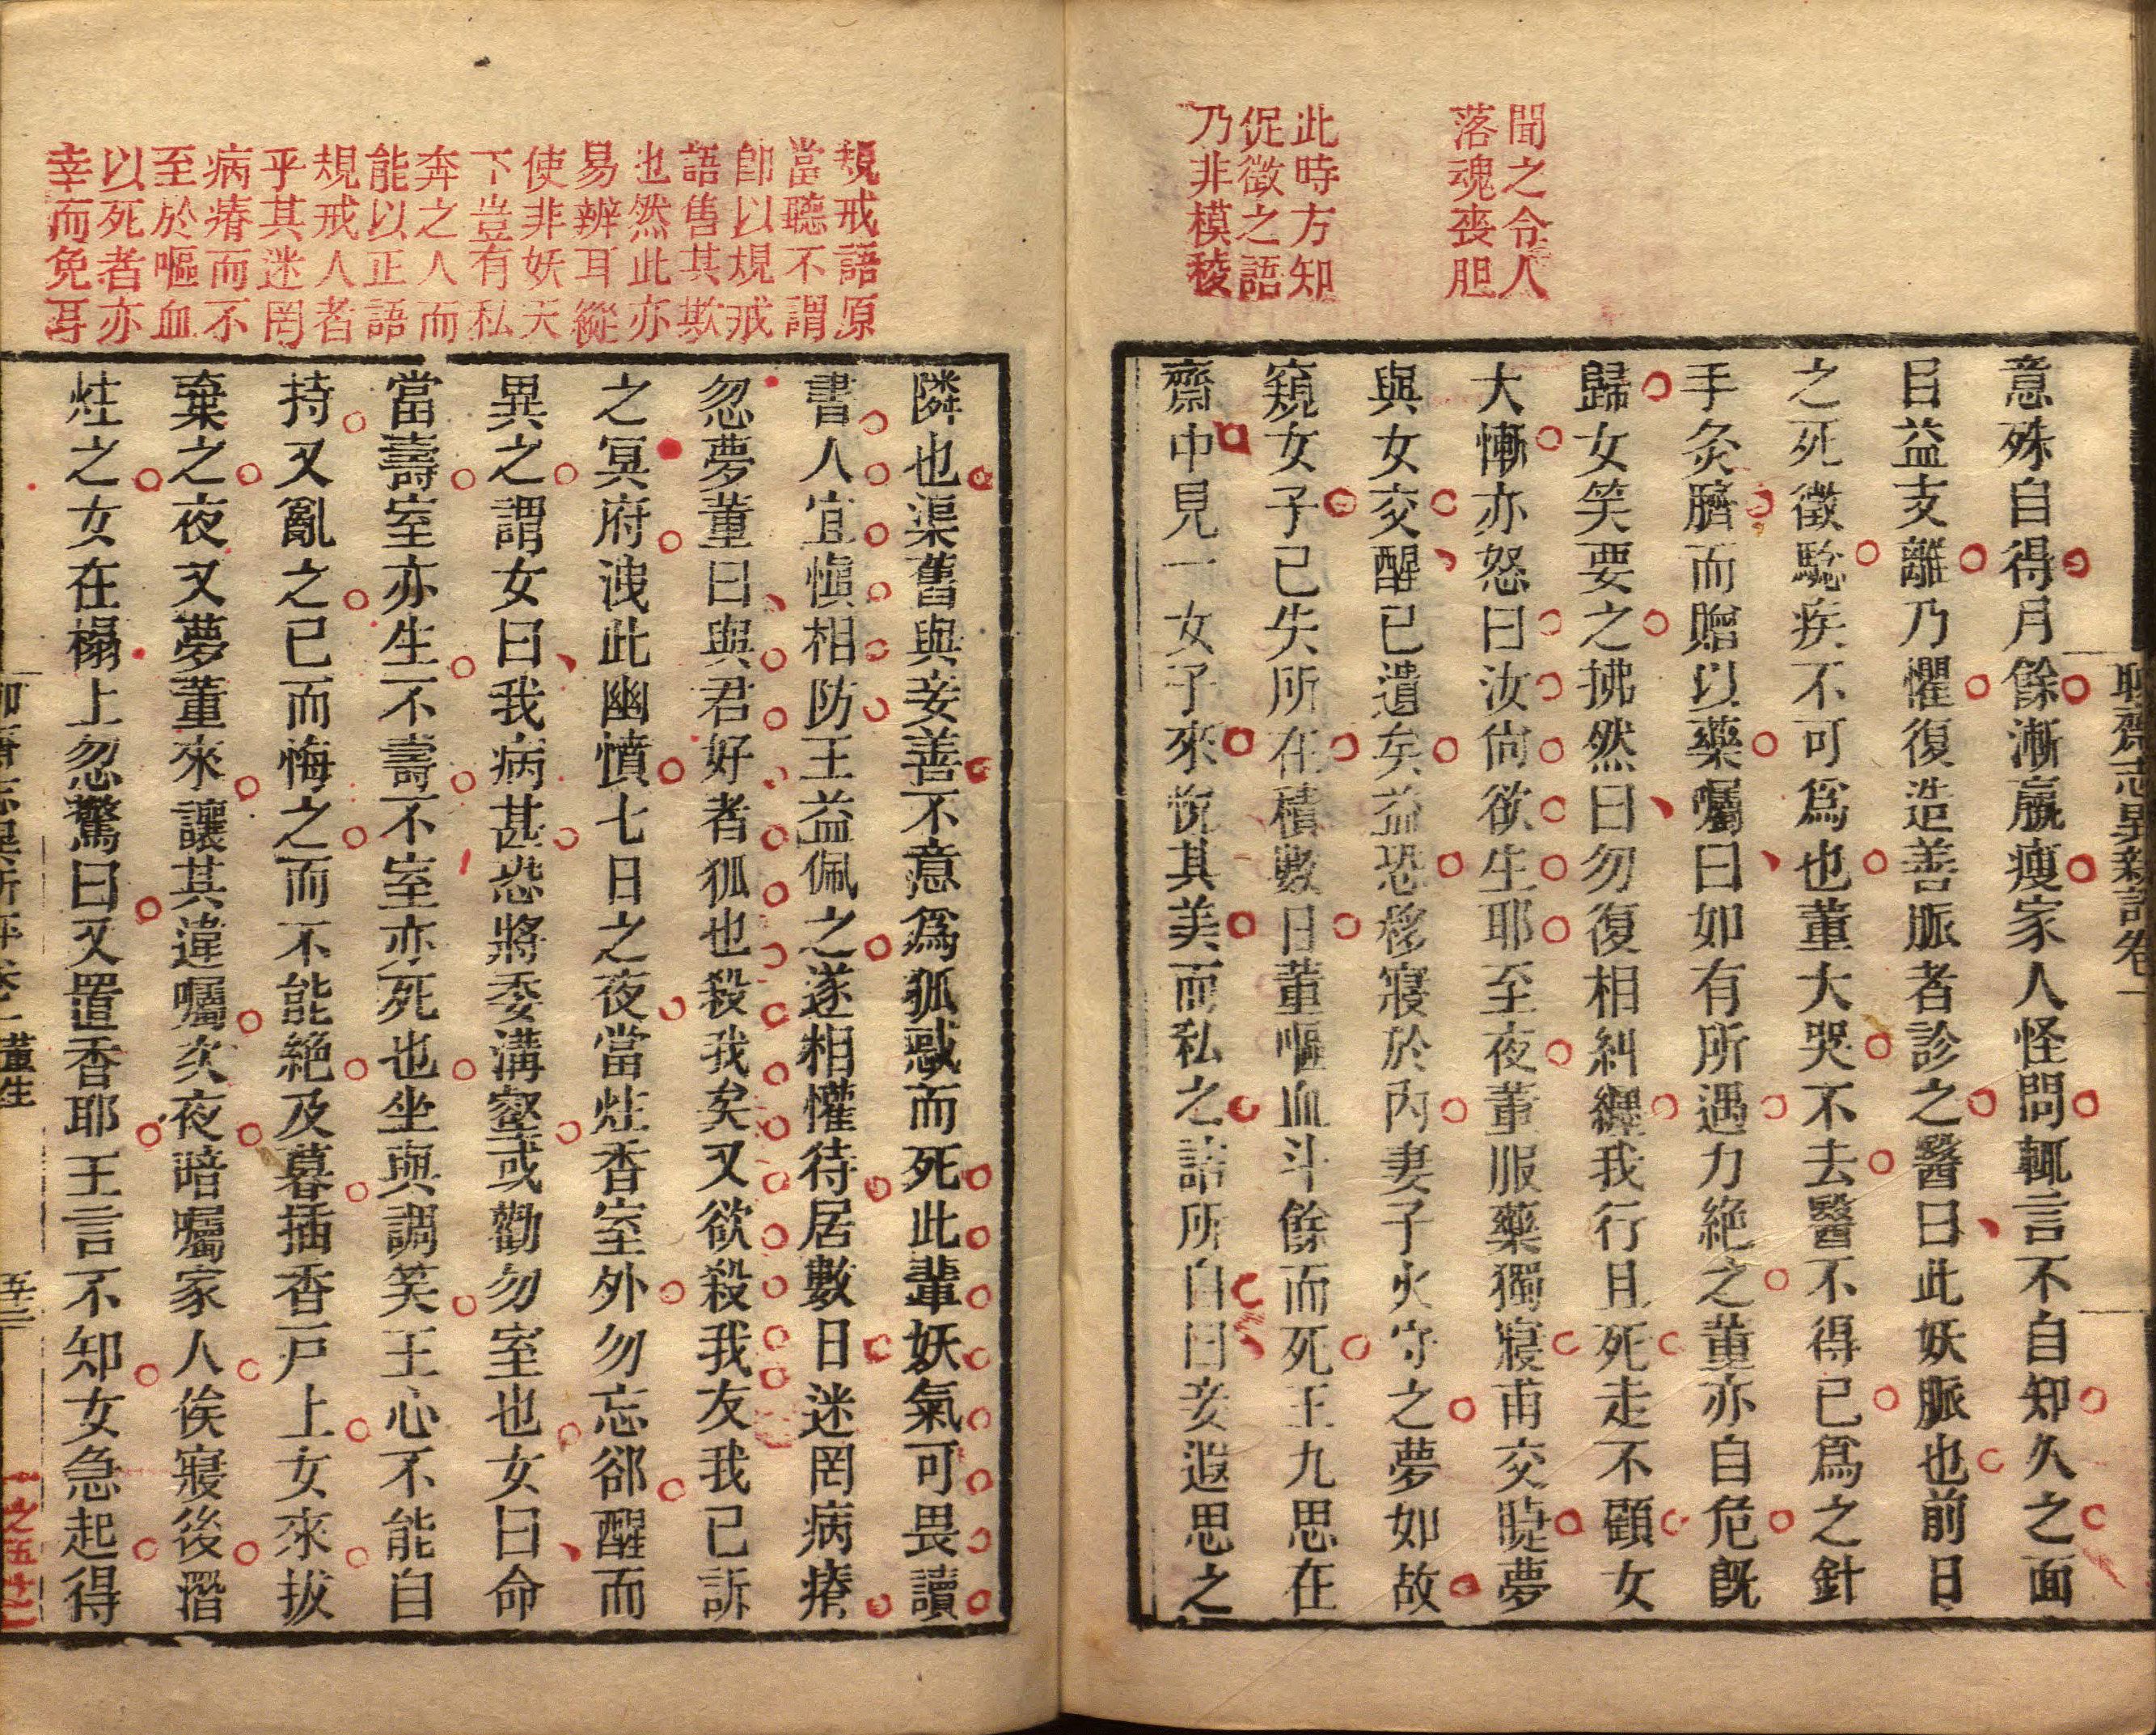 聞之令人
落魂喪胆
此時方知
促徵之語
乃非模稜
聊齋志異新評卷一
意殊自得月餘漸羸瘦家人怪問輒言不自知久之面
目益支離乃懼復造善脈者診之醫曰此妖脈也前日
之死徵驗疾不可爲也董大哭不去醫不得已爲之針
手灸臍而贈以藥囑曰如有所遇力絶之董亦自危既
歸女笑要之拂然曰勿復相糾纏我行且死走不顧女
大慚亦怒曰汝尙欲生耶至夜董服藥獨寢甫交睫夢
與女交醒已遺矣益恐移寢於內妻子火守之夢如故
窺女子已失所在積數日董嘔血斗餘而死王九思在
齋中見一女子來悅其美而私之詰所自曰妾遐思之
規戒語原
當聽不謂
卽以規戒
語售其欺
也然此亦
易辨耳縱
使非妖天
下豈有私
奔之人而
能以正語
規戒人者
乎其迷罔
病瘠而不
至於嘔血
以死者亦
幸而免耳
隣也渠舊與妾善不意爲狐惑而死此輩妖氣可畏讀
書人宜愼相防王益佩之遂相懽待居數日迷罔病瘠
忽夢董曰與君好者狐也殺我矣又欲殺我友我已訴
之冥府洩此幽憤七日之夜當炷香室外勿忘郤醒而
異之謂女曰我病甚恐將委溝壑或勸勿室也女曰命
當壽室亦生不壽不室亦死也坐與調笑王心不能自
持又亂之已而悔之而不能絶及暮插香戸上女來拔
棄之夜又夢董來讓其違囑次夜暗囑家人俟寢後潛
炷之女在榻上忽驚曰又置香耶王言不知女急起得
聊齋志異新評卷一 董生 五三